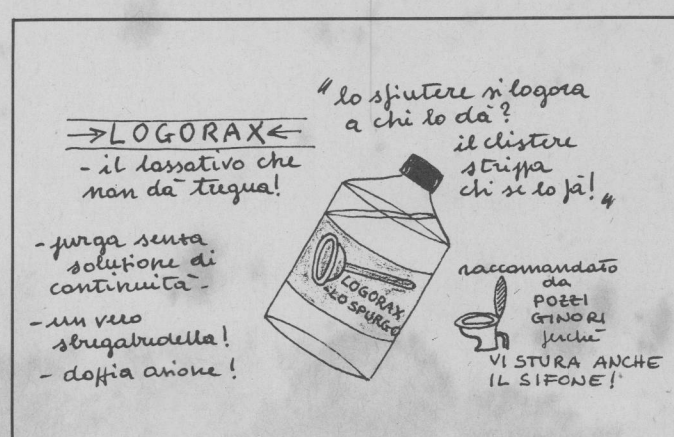 →LOGORAX←
- il lassativo che
non dà tregua!
- purga senza
soluzione di
continuità -
- un vero
sbregabudella!
- doppia azione!
"lo sfintere si logora
a chi lo dà?
il clistere
strippa
chi se lo fà!"
LOGORAX
LO SPURGO
raccomandato
da
POZZI
GINORI
perchè
VI STURA ANCHE
IL SIFONE!